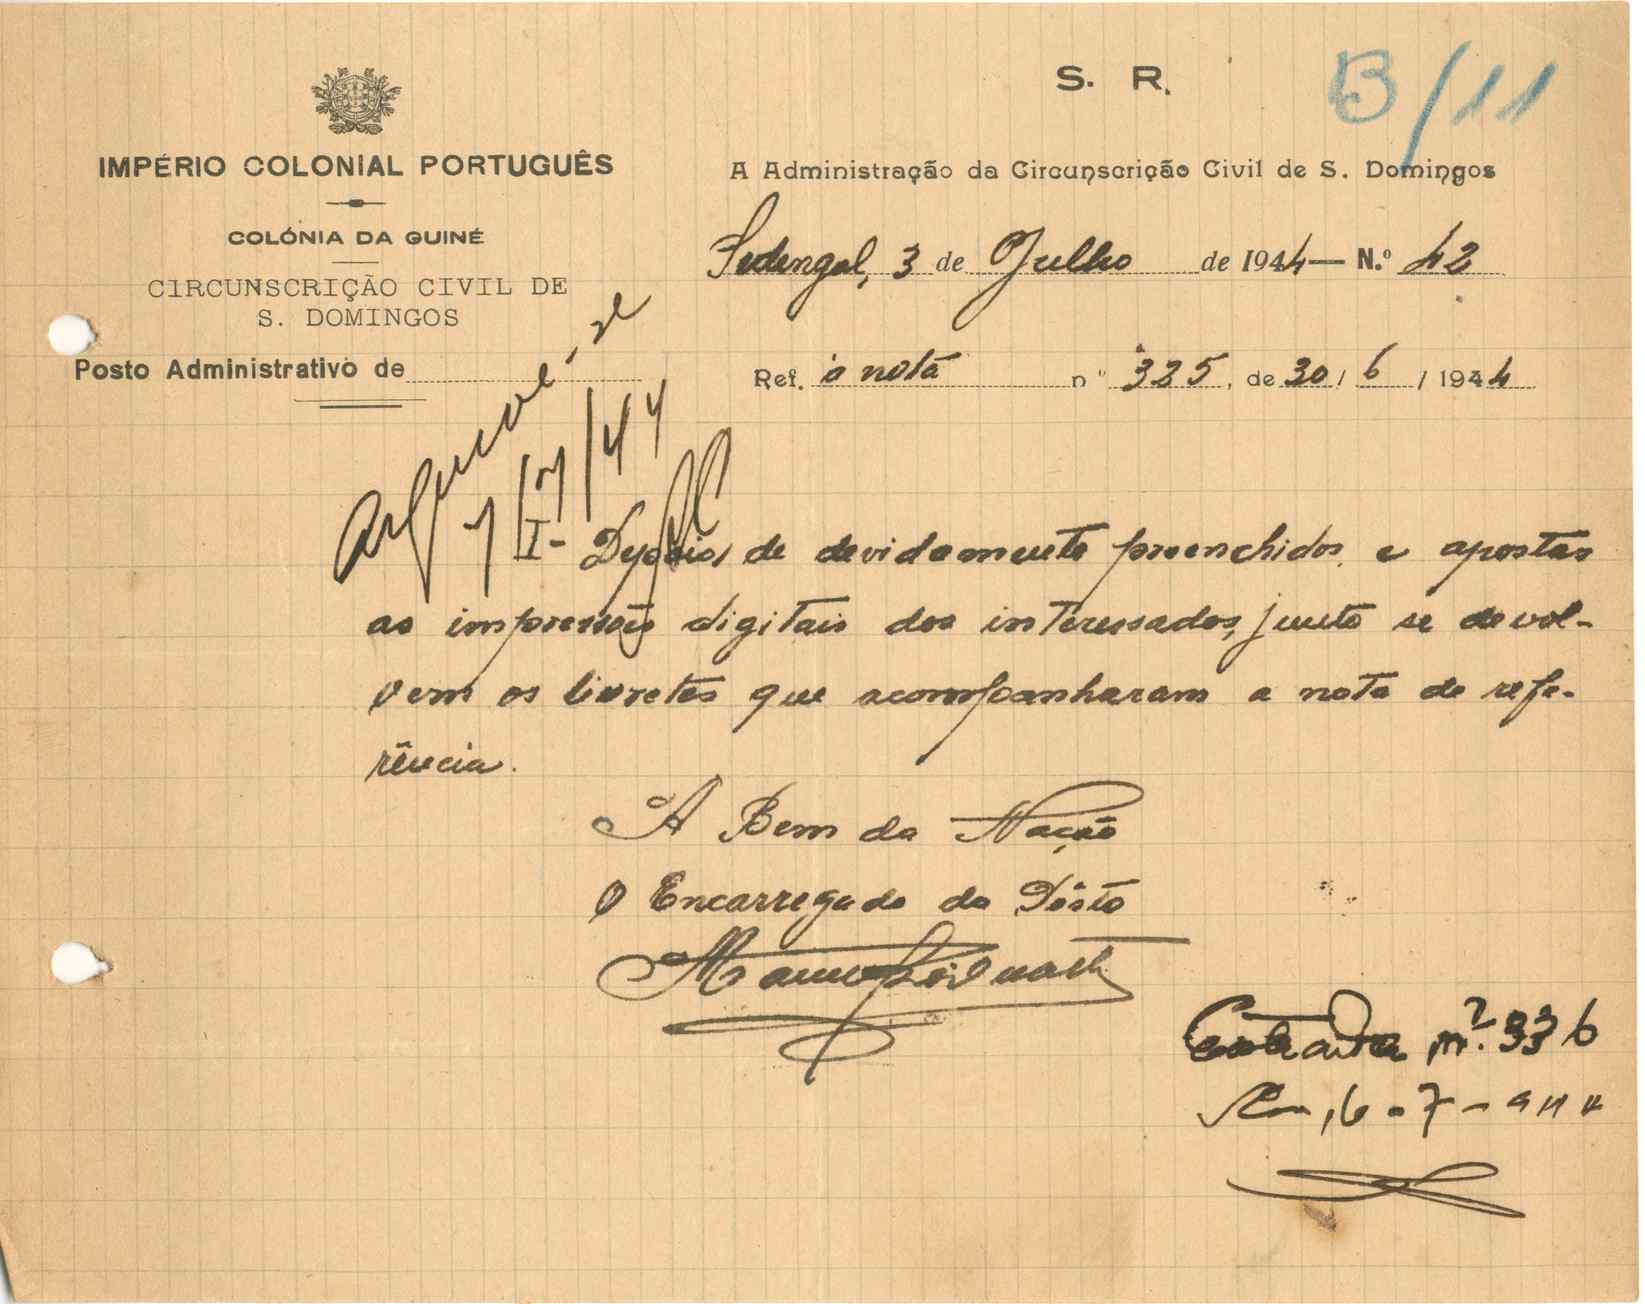 S. R.
B/11
IMPÉRIO COLONIAL PORTUGUÊS
COLÓNIA DA GUINÉ
CIRCUNSCRIÇÃO CIVIL DE
S. DOMINGOS
Posto Administrativo de
A Administração da Circunscrição Civil de S. Domingos
Sedengal, 3 de Julho de 1944 — N.º 42
Ref. à nota nº 325, de 30 / 6 / 1944
Arquive-se
7/7/44
I - Depois de devidamente preenchidos e apostas
as impressões digitais dos interessados, junto se devol-
vem os livretes que acompanharam a nota de refe-
rência.
A Bem da Nação
O Encarregado do Pôsto
Entrada nº. 336
Em, 6 - 7 - 944